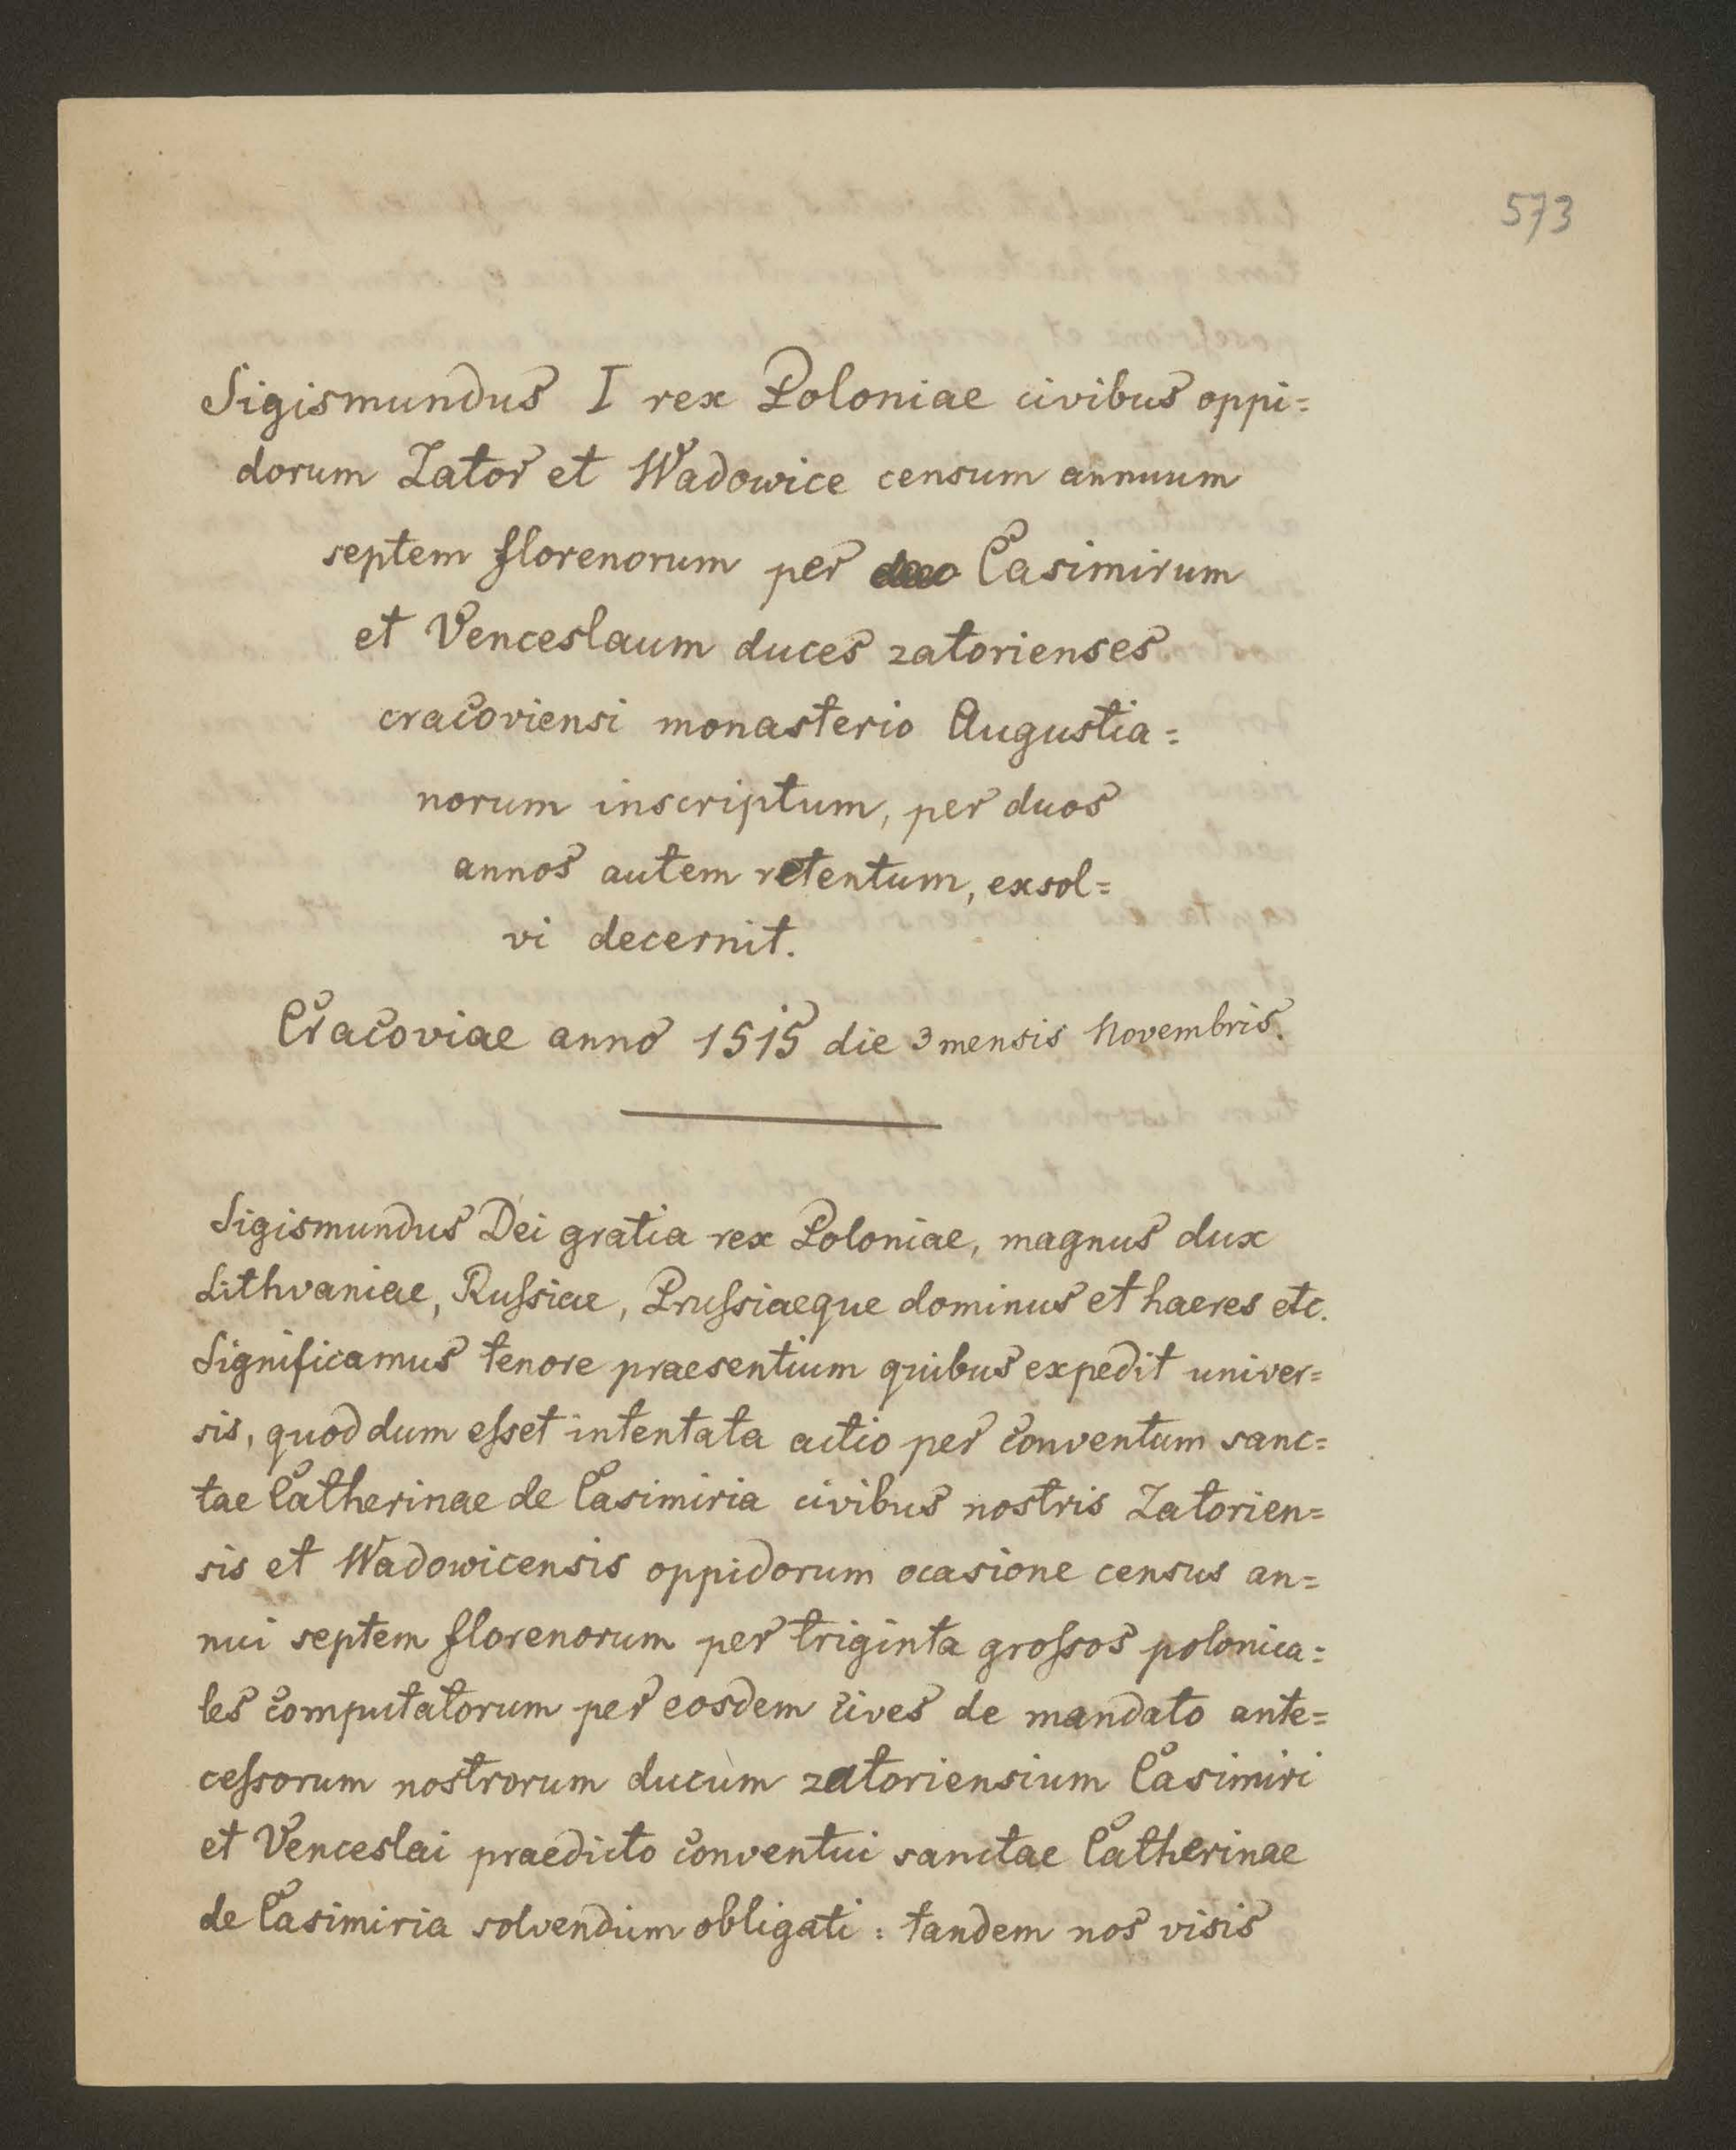 573
Sigismundus I rex Poloniae civibus oppi=
dorum Zator et Wadowice censum annuum
septem florenorum per Casimirum
et Venceslaum duces zatorienses
cracoviensi monasterio Augustia=
norum inscriptum, per duos
annos autem retentum, exsol=
vi decernit.
Cracoviae anno 1515 die 3 mensis Novembris.
Sigismundus Dei gratia rex Poloniae, magnus dux
Lithvaniae, Ruſsiae, Pruſsiaeque dominus et haeres etc.
Significamus tenore praesentium quibus expedit univer=
sis, quod dum eſset intentata actio per conventum sanc=
tae Catherinae de Casimiria civibus nostris Zatorien=
sis et Wadowicensis oppidorum ocasione census an=
nui septem florenorum per triginta groſsos polonica=
les computatorum per eosdem cives de mandato ante=
ceſsorum nostrorum ducum zatoriensium Casimiri
et Venceslai praedicto conventui sanctae Catherinae
de Casimiria solvendum obligati : tandem nos visis